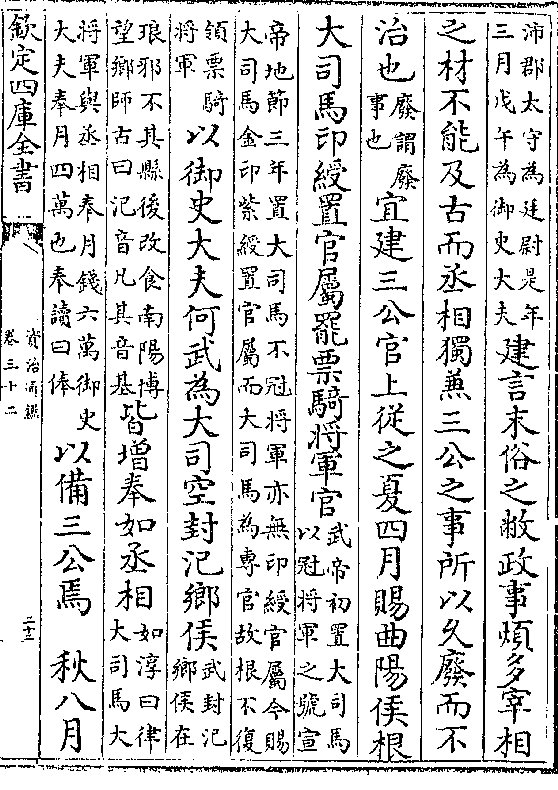 沛郡太守為廷尉是年
三月戊午為御史大夫
建言末俗之敝政事煩多宰相
之材不能及古而丞相獨兼三公之事所以久廢而不
治也
廢謂廢
事也
宜建三公官上從之夏四月賜曲陽侯根
大司馬印綬置官屬罷票騎將軍官
武帝初置大司馬
以冠將軍之號宣
帝地節三年置大司馬不冠將軍亦無印綬官屬今賜
大司馬金印紫綬置官屬而大司馬為專官故根不復
領票騎
將軍
以御史大夫何武為大司空封氾鄉侯
武封氾
鄉侯在
琅邪不其縣後改食南陽博
望鄉師古曰氾音凡其音基
皆增奉如丞相
如淳曰律
大司馬大
將軍與丞相奉月錢六萬御史
大夫奉月四萬也奉讀曰俸
以備三公焉　秋八月
欽定四庫全書
資治通鑑
卷三十二
二十三